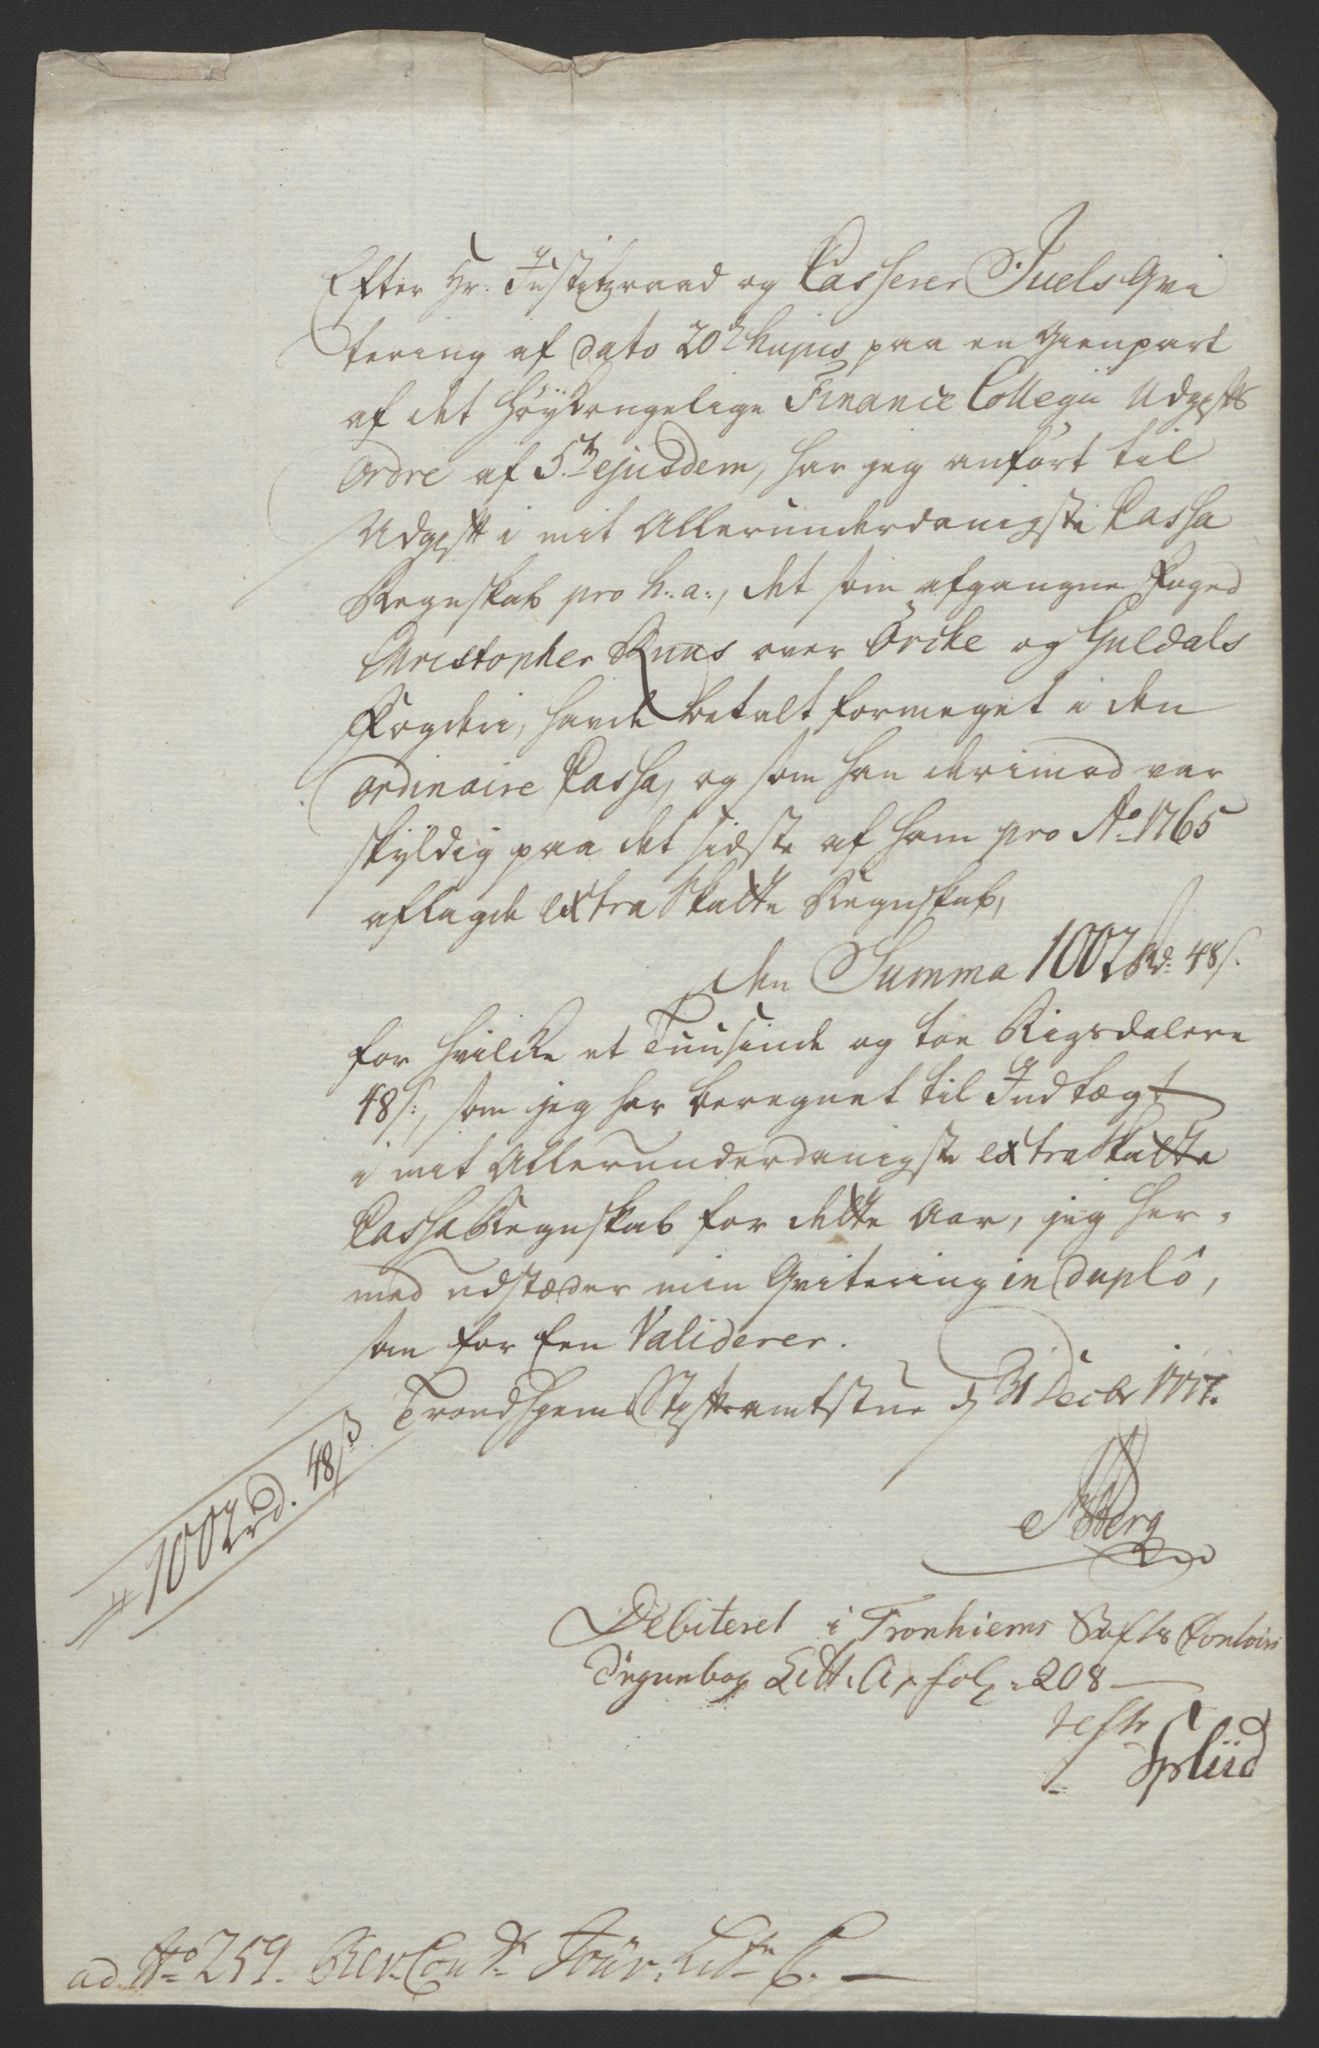 Efter Hr: Justitzraad og Casserer Juels Qvi
tering af dato 20de hujus paa en Gienpart
af det Höykongelige Finance Collegii Udgifts
Ordre af 5te ejusdem, har jeg anført til
Udgift i mit Allerunderdanigste Cassa
Regnskab pro h: a:, det som afgangne Foged
Christopher Ruus over Örcke og Guldals
Fogderi, havde betalt formeget i den
ordinaire Cassa, og som han derimod var
skyldig paa det sidste af ham pro Ao 1765
aflagde extra Skatte Regnskab,
den Summa 1002 Rd: 48 s.
for hvilke et Tuusinde og toe Rigsdalere
48 s:, som jeg har beregnet til Indtægt
i mit Allerunderdanigste extra Skatte
Cassa Regnskab for dette Aar, jeg her-
med udstæder min Qvitering in duplo,
som for Een Validerer.
Trondhjems Stiftamtstue d 31 Decbr 1767.
Berg
1002 rd. 48 s
Debiteret i Tronhiems Stifts Contoirs
Dignebog Litt. A, fol. 208
test
Spliid
ad No 259. Rev: Con Jour. Litr. C.